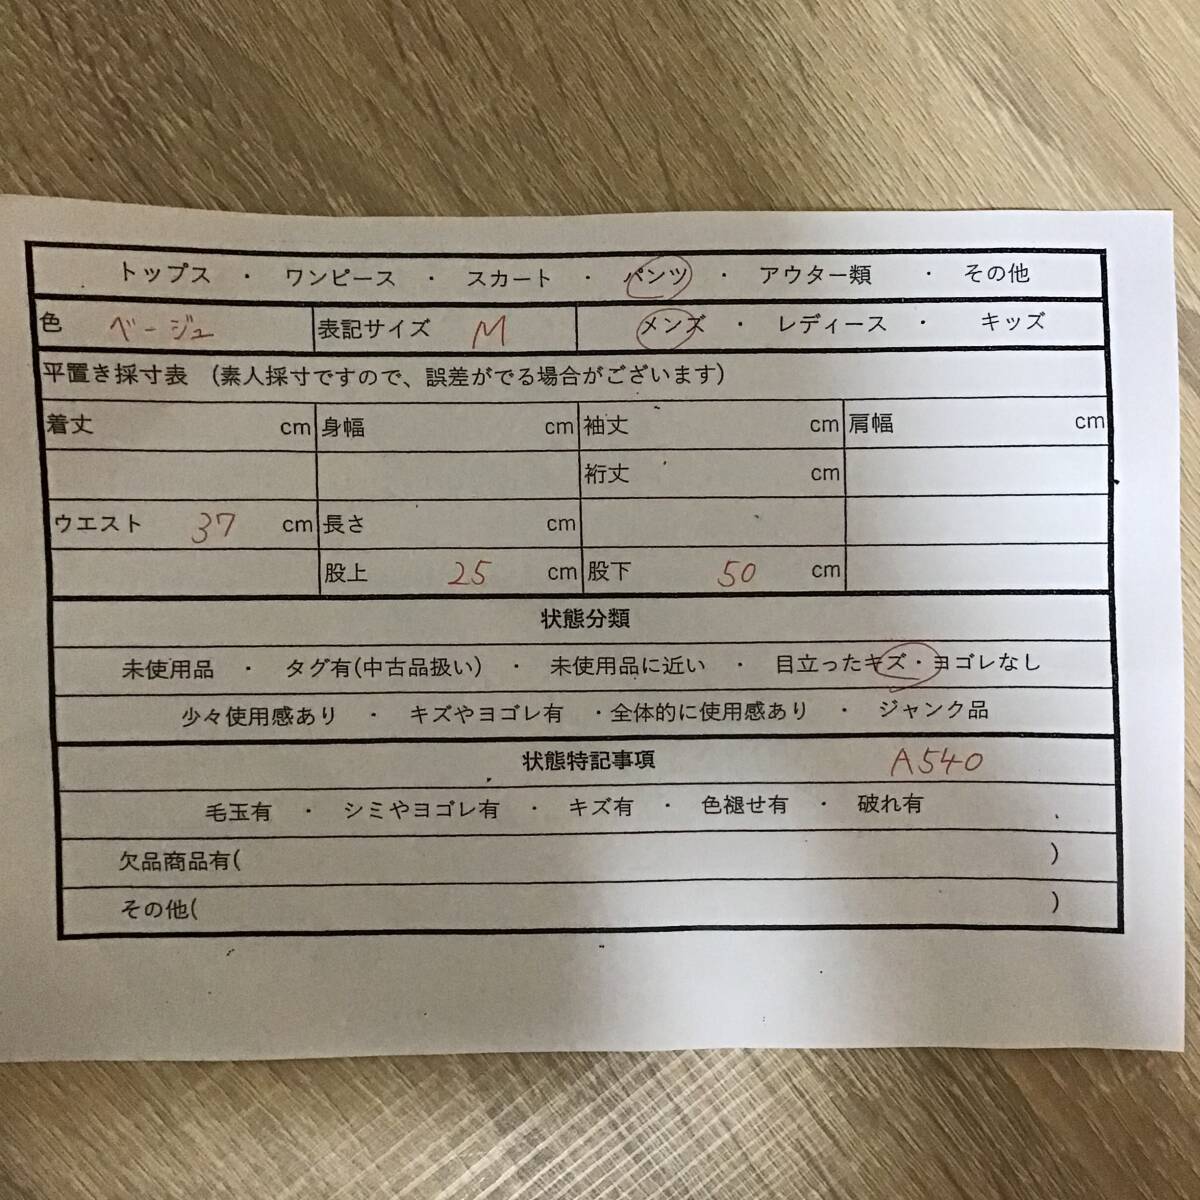 トップス ・ ワンピース ・ スカート ・ パンツ ・ アウター類 ・ その他
色 ベージュ 表記サイズ M メンズ ・ レディース ・ キッズ
平置き採寸表 (素人採寸ですので、誤差がでる場合がございます)
着丈 cm 身幅 cm 袖丈 cm 肩幅 cm
裄丈 cm
ウエスト 37 cm 長さ cm
股上 25 cm 股下 50 cm
状態分類
未使用品 ・ タグ有(中古品扱い) ・ 未使用品に近い ・ 目立ったキズ・ヨゴレなし
少々使用感あり ・ キズやヨゴレ有 ・全体的に使用感あり ・ ジャンク品
状態特記事項 A540
毛玉有 ・ シミやヨゴレ有 ・ キズ有 ・ 色褪せ有 ・ 破れ有
欠品商品有( )
その他( )